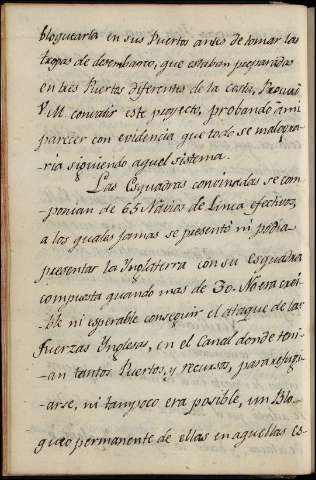 bloquearla en sus Puertos antes de tomar las
tropas de desembarco, que estaban preparadas
en tres Puertos diferentes de la costa. Procuré
V.M. convatir este proyecto, probando à mi
parecer con evidencia que todo se malogra-
-ria siguiendo aquel sistema.
Las Esquadras convinadas se com-
-ponian de 65 Navios de Linea efectivos,
a los quales jamas se presentó ni podia
presentar la Ynglaterra con su Esquadra
compuesta quando mas de 30. No era crei-
-ble ni esperable conseguir el ataque de las
fuerzas Ynglesas, en el Canal donde teni-
-an tantos Puertos, y recursos, para refugi-
-arse, ni tampoco era posible, un Blo-
queo permanente de ellas en aquellas es-